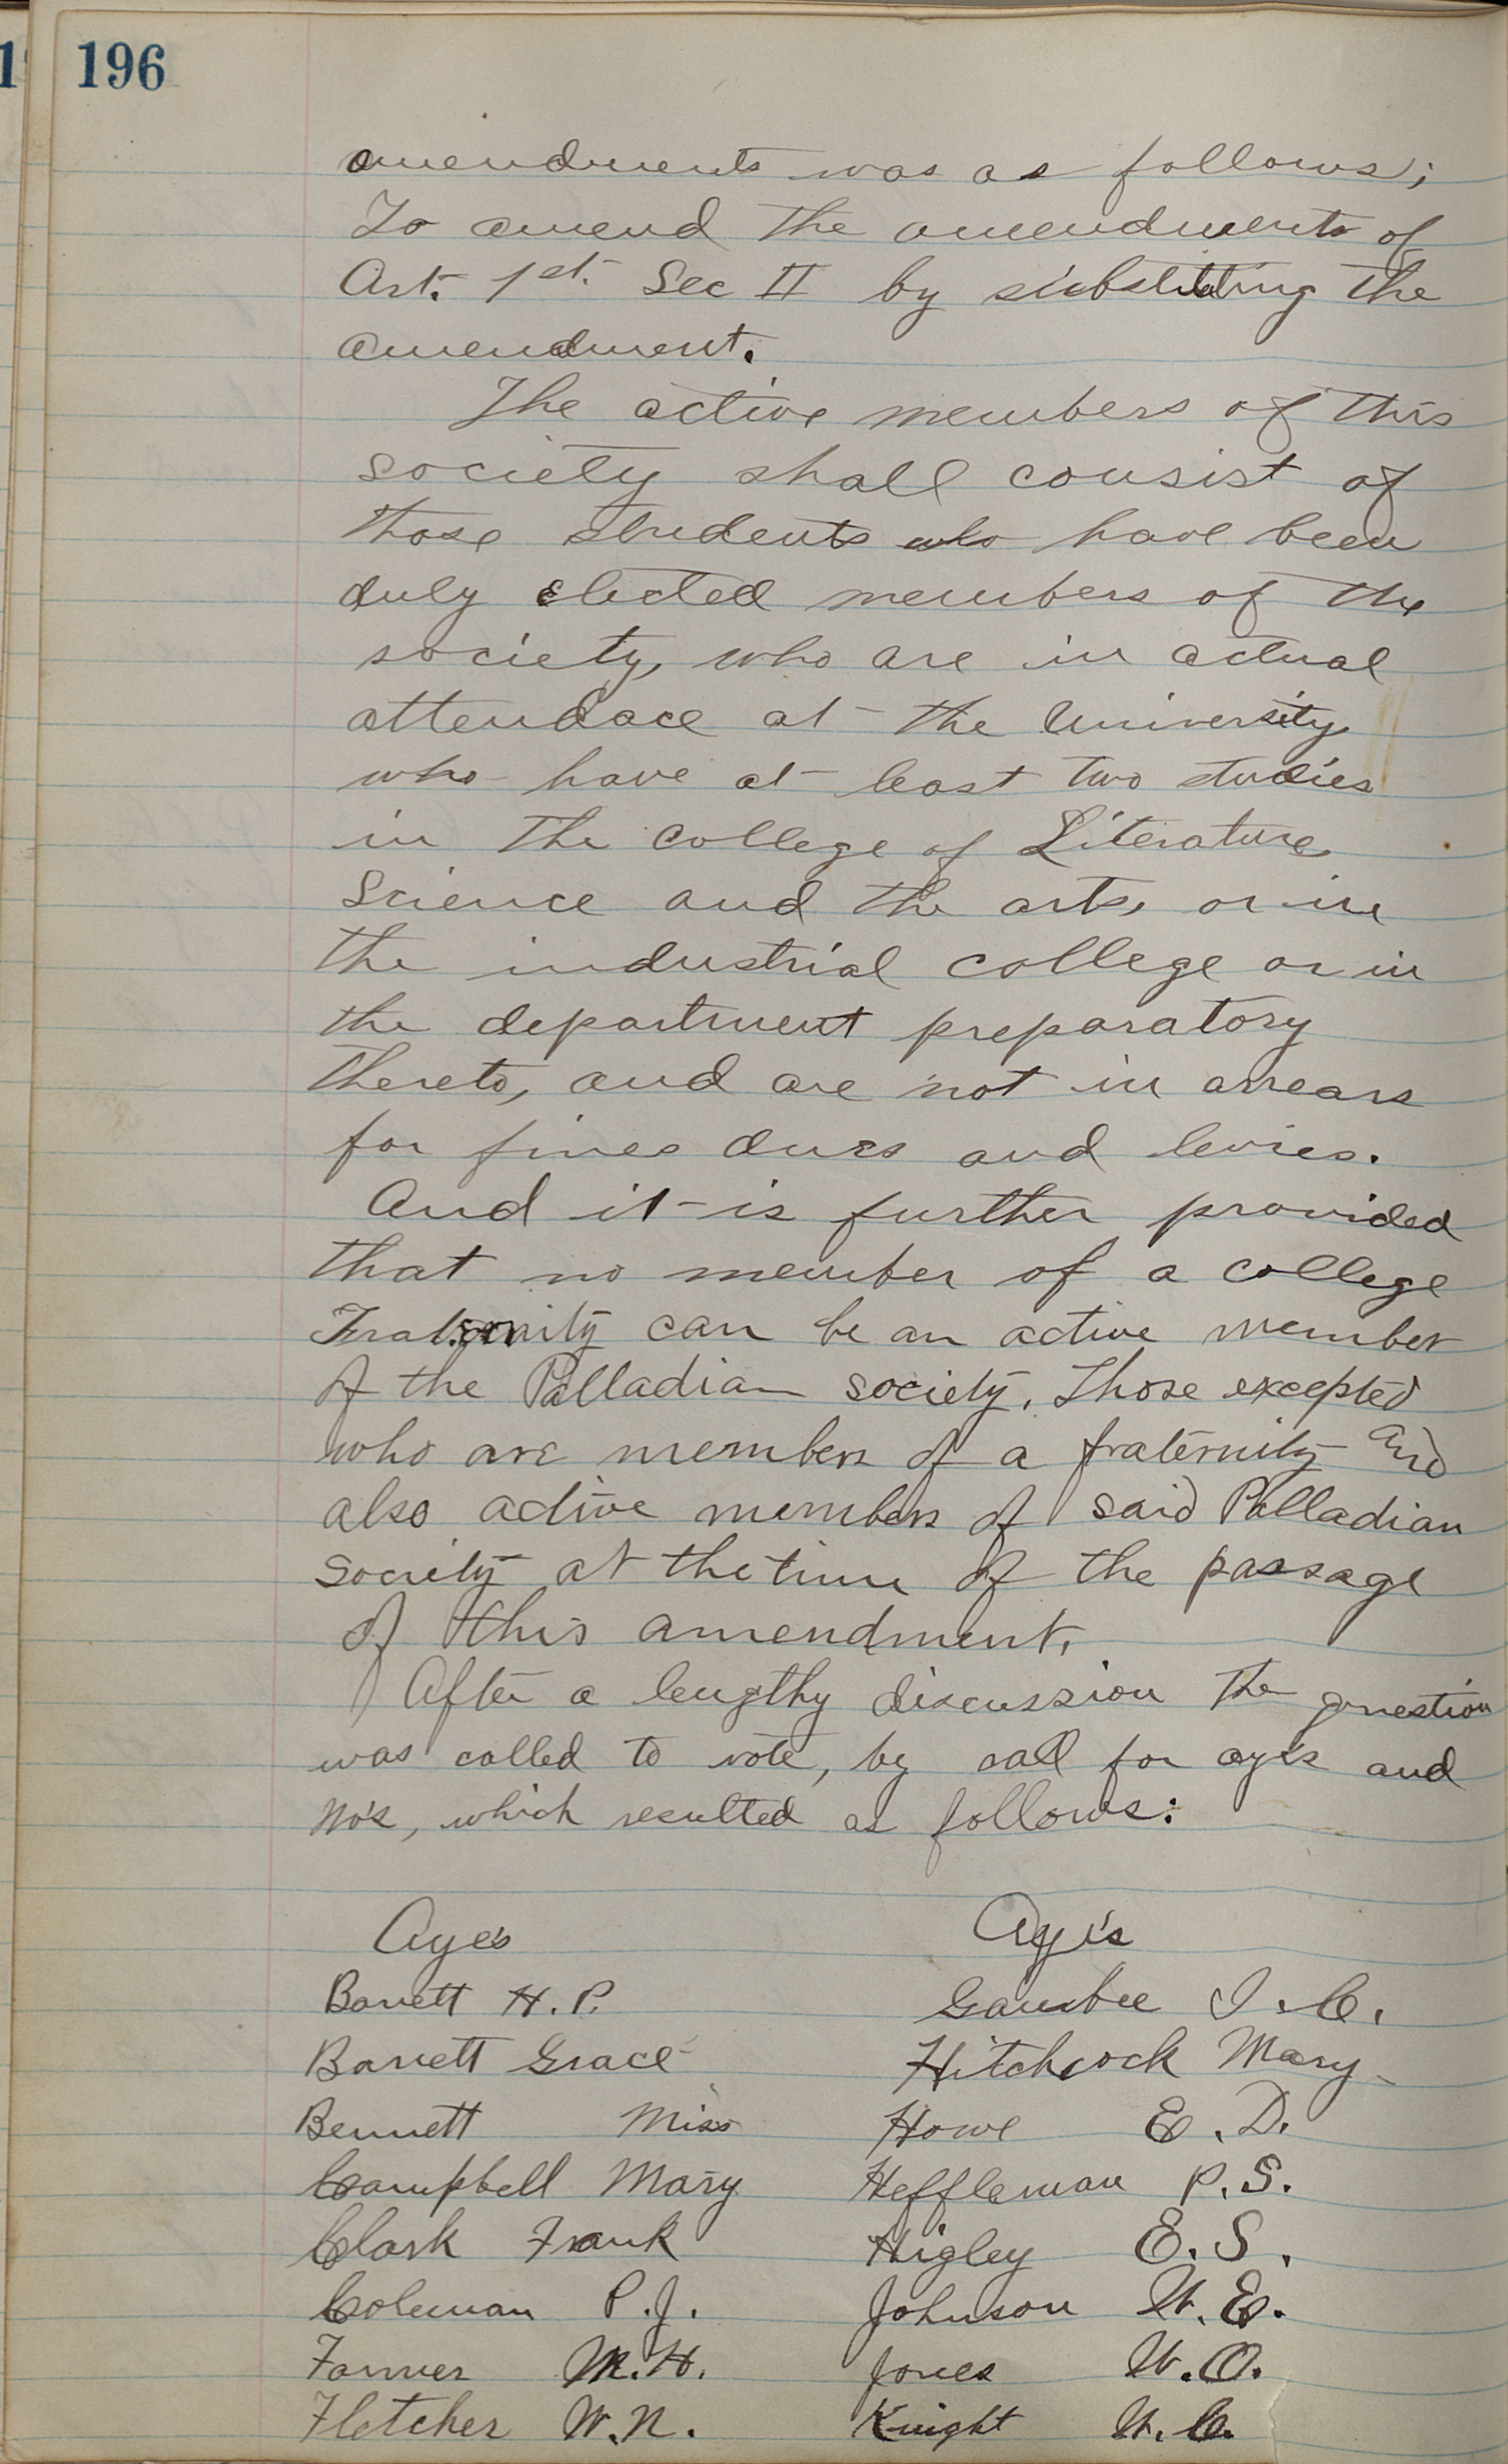 196
amendments was as follows;
To amend the amendments of
Art. 1st. Sec II by substituting the
amendment.
The active members of this
society shall consist of
those students who have been
duly elected members of the
society, who are in actual
attendace at the University
who have at least two studies
in the college of Literature
Science and the arts, or in
the industrial college or in
the department preparatory
thereto, and are not in arrears
for fines dues and levies.
And it is further provided
that no member of a college
Fraternity can be an active member
of the Palladian society. Those excepted
who are members of a fraternity and
also active members of said Palladian
Society at the time of the passage
of this amendment.
After a lengthy discussion the question
was called to vote, by call for aye's and
No's, which resulted as follows:
Aye's Aye's
Barrett H. P. Gambee I. C.
Barrett Grace Hitchcock Mary
Bennett Miss Howe E. D.
Campbell Mary Heffleman P. S.
Clark Frank Higley E. S.
Coleman P. J. Johnson W. E.
Farmer M. H. Jones W. O.
Fletcher W. N. Knight W. C.